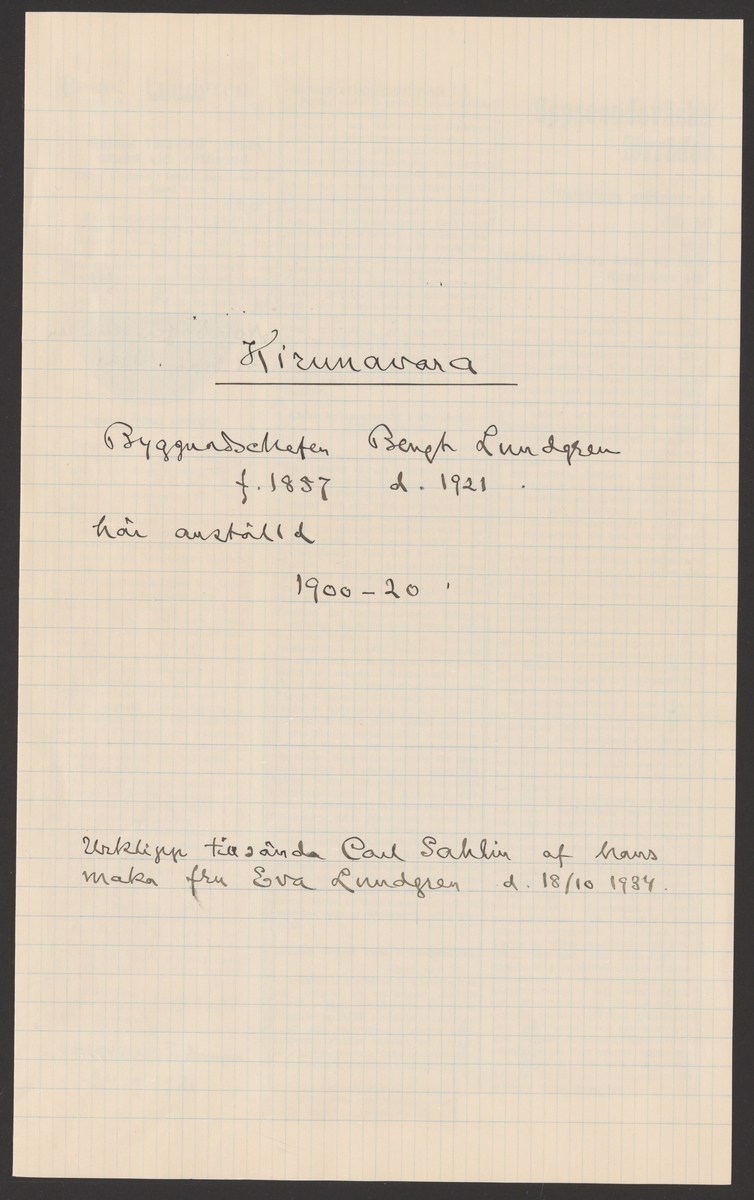 Kirunavara
Byggnadschefen Bengt Lundgren
f. 1857 d. 1921.
här anställd
1900-20
Urklipp tillsända Carl Sahlin af hans
maka fru Eva Lundgren d. 18/10 1934.